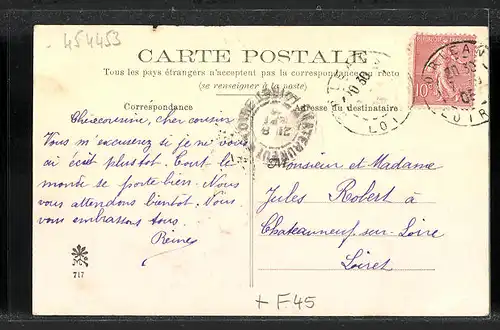 454453
CARTE POSTALE
Tous les pays étrangers n'acceptent pas la correspondance au recto
(se renseigner à la poste)
Correspondance
Adresse du destinataire
Chère cousine, cher cousin
Vous m'excuserez si je ne vous
ai écrit plus tot. Tout le
monde se porte bien. Nous
vous attendons bientot. Nous
vous embrassons tous.
Reine
Monsieur et Madame
Jules Robert à
Chateauneuf-sur-Loire
Loiret
717
+ F. 45
10
ORLEANS
LOIRET